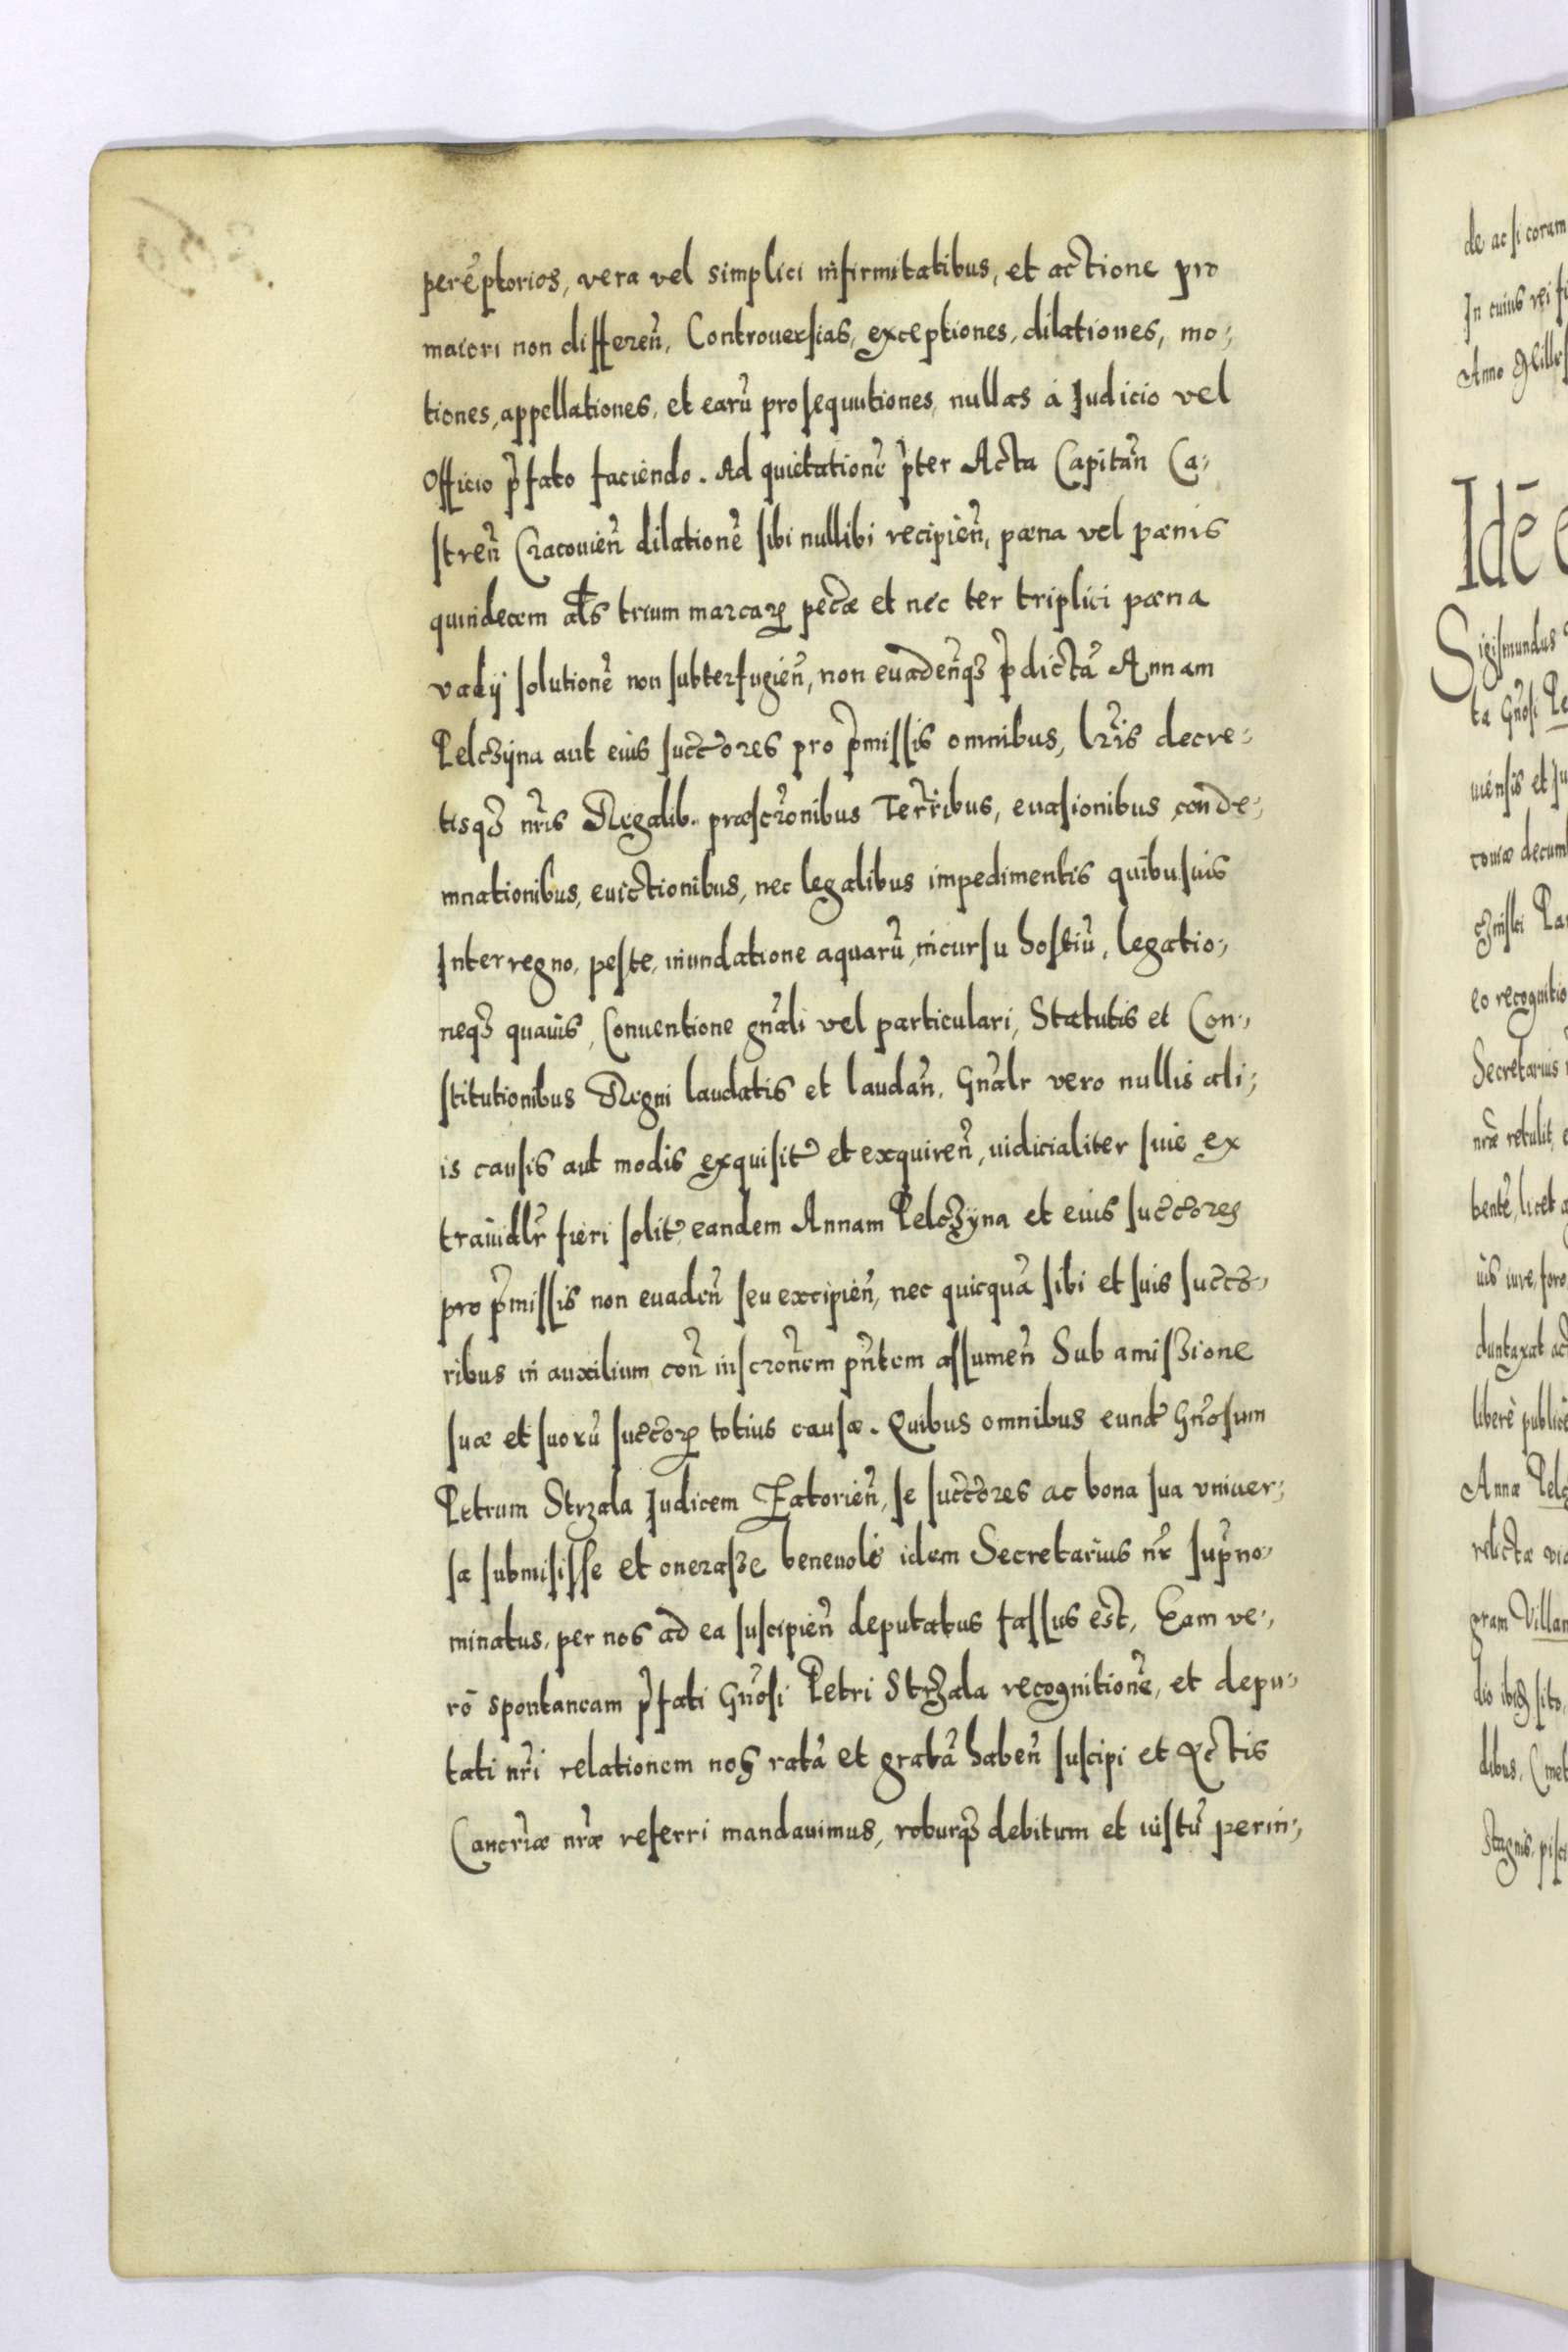 perēptorios, vera vel simplici infirmitatibus, et actione pro
maiori non differen̄, Controuersias, exceptiones, dilationes, mo-
tiones, appellationes, et earū prosequutiones, nullas à Judicio vel
Officio p̄fato faciendo. Ad quietationē p̄ter Acta Capitān Ca-
stren̄ Cracouien̄ dilationē sibi nullibi recipien̄, pæna vel pænis
quindecem als trium marcarꝝ pecæ et nec ter triplici pæna
vadij solutionē non subterfugien̄, non euaden̄qȝ p̄dictā Annam
Pelczÿna aut eius succ̄ores pro p̄missis omnibus, lr̄is decre-
tisqȝ nr̄is Regalib. præscr̄onibus Terr̄ibus, euasionibus conde-
mnationibus, euictionibus, nec legalibus impedimentis quibusuis
Interregno, peste, inundatione aquarū, incursu hostiū, legatio-
neqȝ quauis, Conuentione gn̄ali vel particulari, Statutis et Con-
stitutionibus Regni laudatis et laudan̄. Gn̄alr vero nullis ali-
is causis aut modis exquisit et exquiren̄, iudicialiter siue ex
traiudlr̄ fieri solit eandem Annam Pelczÿna et eius succ̄ores
pro p̄missis non euaden̄ seu excipien̄, nec quicquā sibi et suis succ̄o-
ribus in auxilium con̄ inscr̄onem pn̄tem assumen̄ Sub amissione
suæ et suorū succ̄orꝝ totius causæ. Quibus omnibus eund Gn̄osum
Petrum Strzala Judicem Zatorien̄, se succ̄ores ac bona sua vniuer-
sa submisisse et onerasse beneuolè idem Secretarius nr̄ sup̄no-
minatus, per nos ad ea suscipien̄ deputatus fassus est, Eam ve-
rò spontaneam p̄fati Gn̄osi Petri Strzala recognitionē, et depu-
tati nr̄i relationem nos ratā et gratā haben̄ suscipi et Actis
Cancr̄iæ nr̄æ referri mandauimus, roburqȝ debitum et iustū perin-
de ac si coram
In cuius rei
Idē
Sigismundus